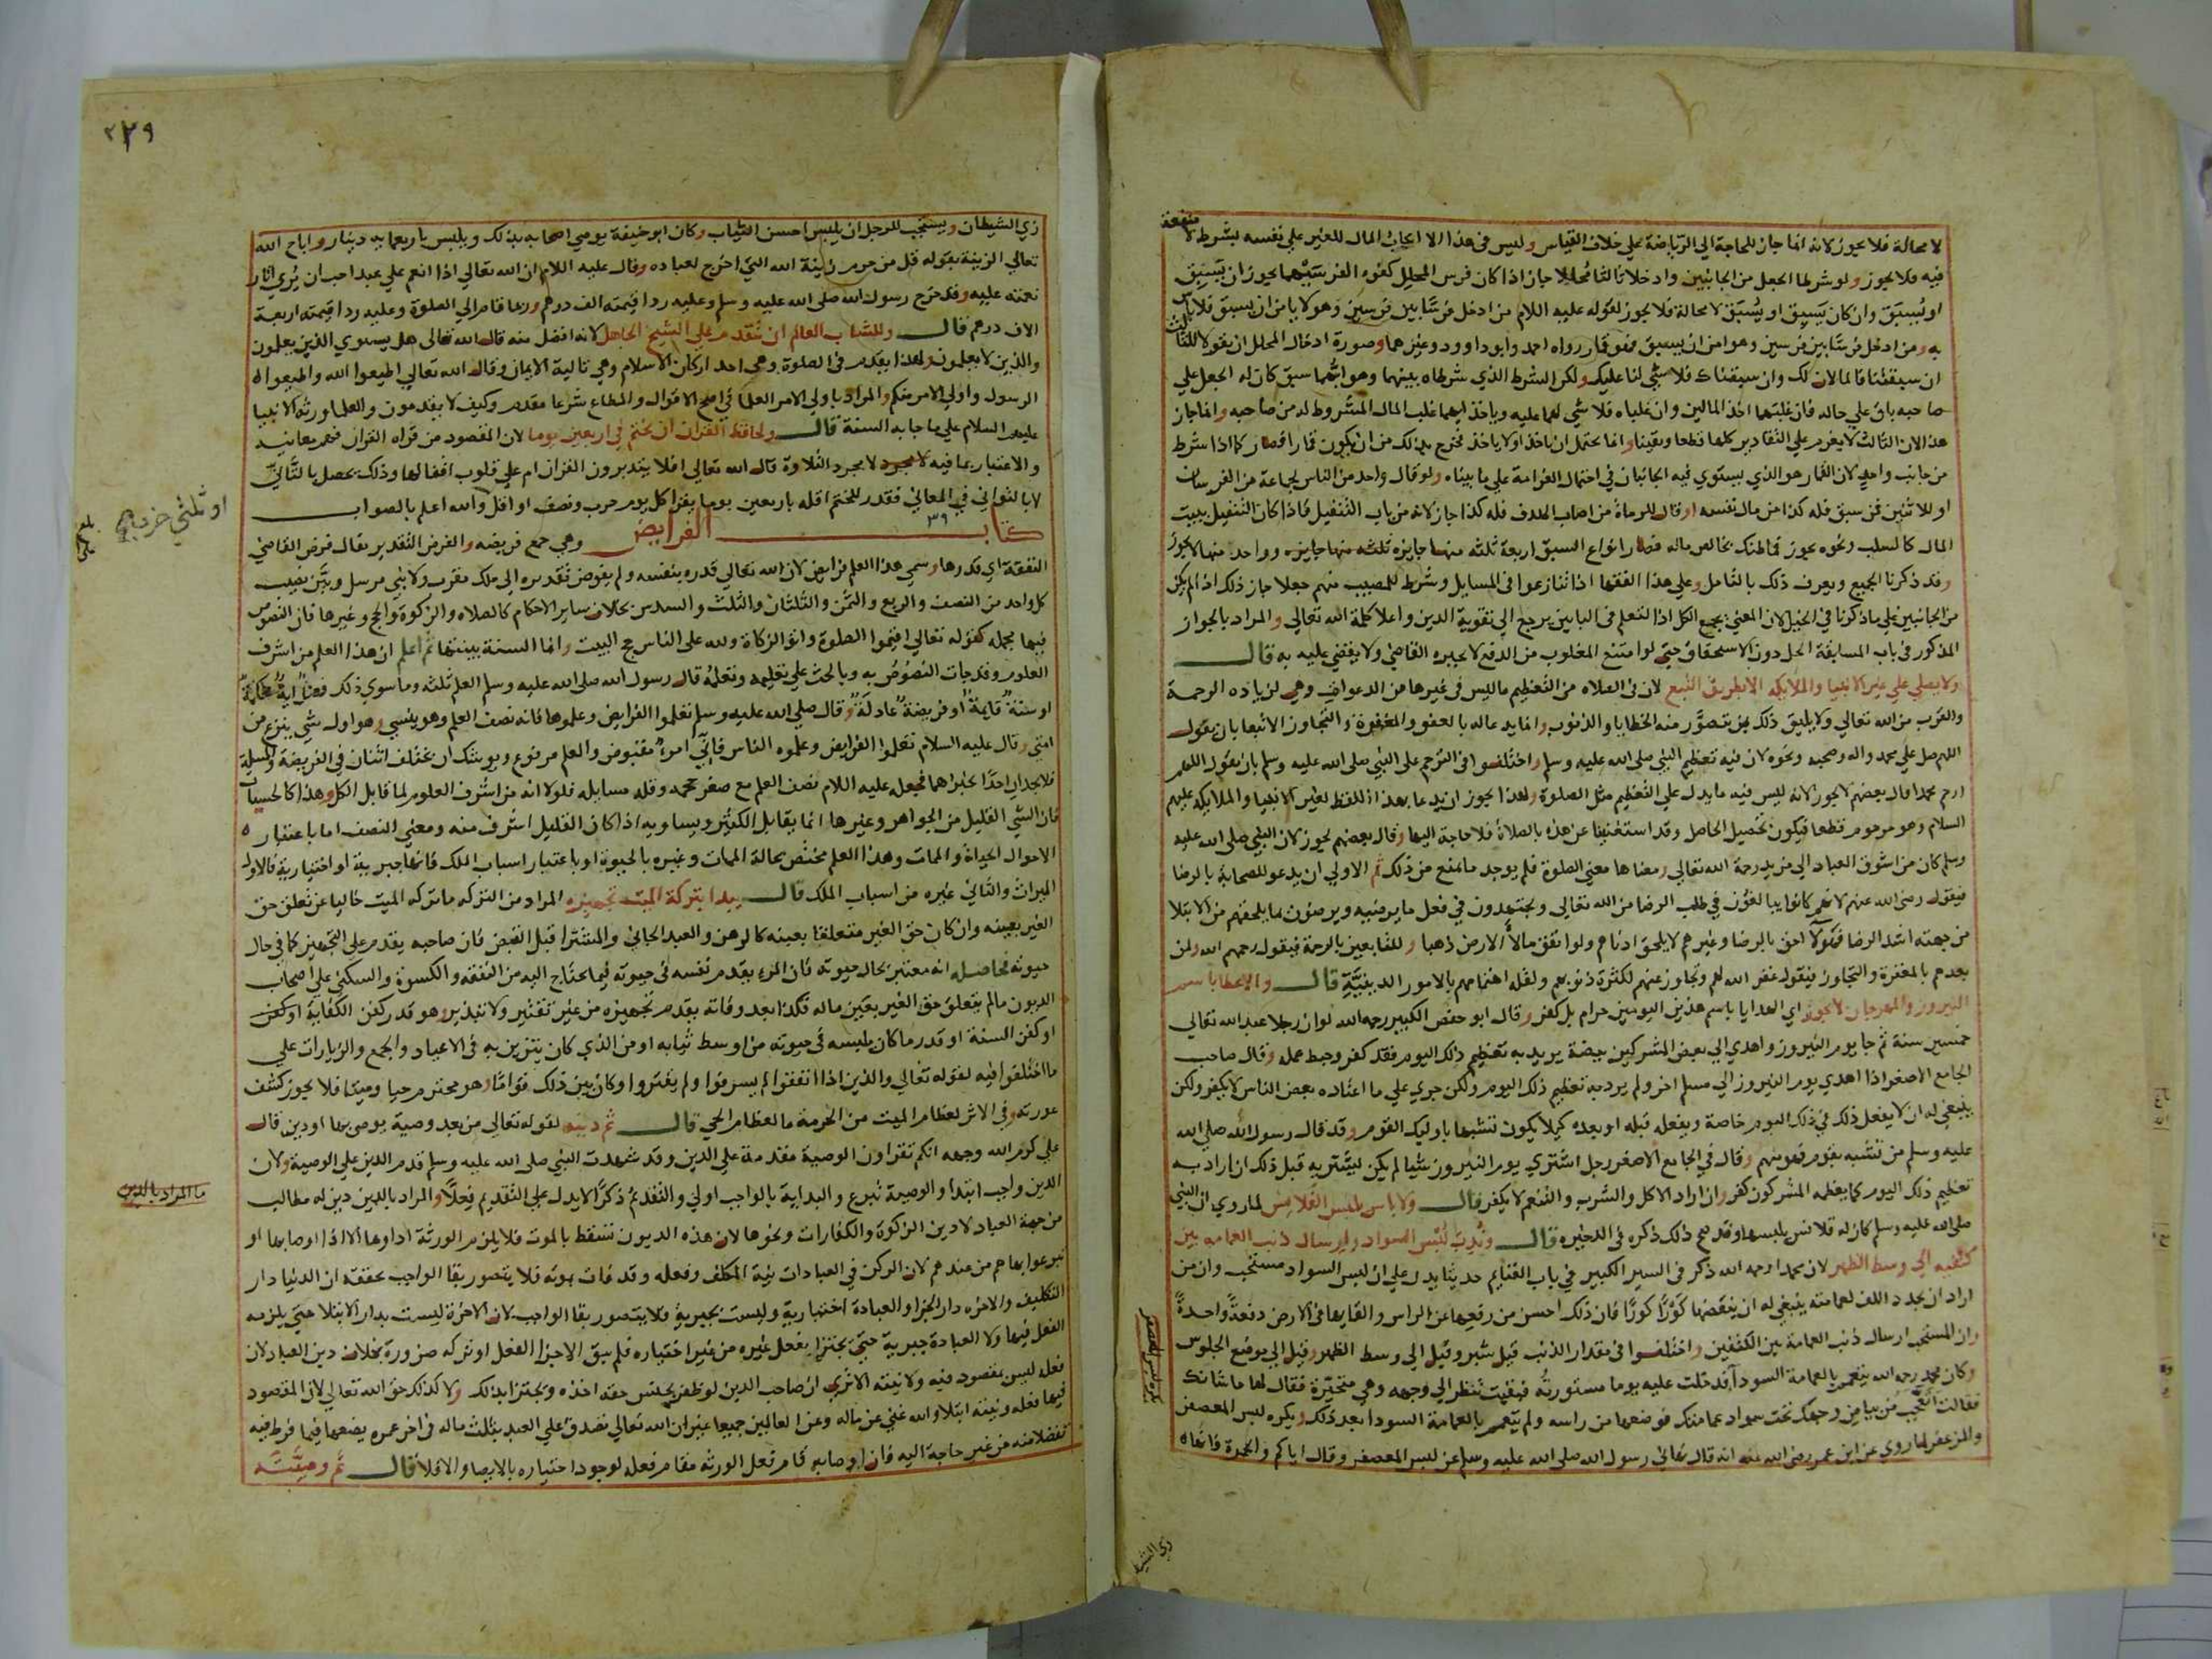 لا محالة فلا يجوز لانه انما جاز للحاجة الي الرياضة علي خلاف القياس وليس في هذا الا ايجاب المال للغير علي نفسه بشرط لا منفعة
فيه فلا يجوز ولو شرطا الجعل من الجانبين وادخلا ثالثا محللا جاز اذا كان فرس المحلل كفؤا لفرسيهما يجوز ان يسبق
او يُسبق وان كان يسبق او يُسبق لا محالة فلا يجوز لقوله عليه السلام من ادخل فرسا بين فرسين وهو لا يامن ان يسبق فلا باس
به ومن ادخل فرسا بين فرسين وهو امن ان يسبق فهو قمار رواه احمد وابو داوود وغيرهما وصورة ادخال المحلل ان يقولا للثالث
ان سبقتنا فالمالان لك وان سبقناك فلا شي لنا عليك ولكن الشرط الذي شرطاه بينهما وهو ايهما سبق كان له الجعل علي
صاحبه باق علي حاله فان غلبهما اخذ المالين وان غلباه فلا شي لهما عليه وياخذ ايهما غلب المال المشروط له من صاحبه وانما جاز
هذا لان الثالث لا يغرم علي التقادير كلها قطعا ويقينا وانما يحتمل ان ياخذ او لا ياخذ فخرج بذلك من ان يكون قمارا فصار كما اذا شرط
من جانب واحد لان القمار هو الذي يستوي فيه الجانبان في احتمال الغرامة علي ما بيناه ولو قال واحد من الناس لجماعة من الفرسان
او للاثنين فمن سبق فله كذا من مال نفسه او قال للرماة من اصاب الهدف فله كذا جاز لانه من باب التنفيل فاذا كان التنفيل ببيت
المال كالسلب ونحوه يجوز فما ظنك بخالص ماله فصار انواع السبق اربعة ثلثة منها جايزه ثلثه منها جايزه وواحد منها لا يجوز
وقد ذكرنا الجميع ويعرف ذلك بالتامل وعلي هذا الفقها اذا تنازعوا في المسايل وشرط للمصيب منهم جعلا جاز ذلك اذا لم يكن
من الجانبين علي ما ذكرنا في الخيل لان المعني يجمع الكل اذا التعلم في البابين يرجع الي تقوية الدين واعلا كلمة الله تعالي والمراد بالجواز
المذكور في باب المسابقة الحل دون الاستحقاق حتي لو امتنع المغلوب من الدفع لا يجبره القاضي ولا يقضي عليه به قال
ولا يصلي علي غير الانبيا والملايكه الا بطريق التبع لان في الصلاه من التعظيم ما ليس في غيرها من الدعوات وهي لزياده الرحمة
والقرب من الله تعالي ولا يليق ذلك بمن يتصور منه الخطايا والذنوب وانما يدعا له بالعفو والمغفرة والتجاوز الا تبعا بان يقول
اللهم صل علي محمد واله وصحبه ونحوه لان فيه تعظيم النبي صلى الله عليه وسلم واختلفوا في الترحم على النبي صلى الله عليه وسلم بان يقول اللهم
ارحم محمدا قال بعضهم لا يجوز لانه ليس فيه ما يدل علي التعظيم مثل الصلوة ولهذا يجوز ان يدعا بهذا اللفظ لغير الانبيا والملايكه عليهم
السلام وهو مرحوم قطعا فيكون تحصيل الحاصل وقد استغنينا عن هذه بالصلاة فلا حاجة اليها وقال بعضهم يجوز لان النبي صلى الله عليه
وسلم كان من اشوق العباد الي مزيد رحمة الله تعالي ومعناها معني الصلوة فلم يوجد ما يمنع من ذلك ثم الاولي ان يدعو للصحابة بالرضا
فيقول رضي الله عنهم لانهم كانوا يبالغون في طلب الرضا من الله تعالي ويجتهدون في فعل ما يرضيه ويرضون بما يلحقهم من الابتلا
من جهته اشد الرضا فهولا احق بالرضا وغيرهم لا يلحق ادناهم ولو انفق مالأ الارض ذهبا وللتابعين بالرحمة فيقول رحمهم الله ولمن
بعدهم بالمغفرة والتجاوز فيقول غفر الله لهم وتجاوز عنهم لكثرة ذنوبهم ولقلة اهتمامهم بالامور الدينيّة قال والاعطا باسم
النيروز والمهرجان لا يجوز اي الهدايا باسم هذين اليومين حرام بل كفر وقال ابو حفص الكبير رحمه الله لو ان رجلا عبد الله تعالي
خمسين سنة ثم جا يوم النيروز واهدي الي بعض المشركين بيضة يريد به تعظيم ذلك اليوم فقد كفر وحبط عمله وقال صاحب
الجامع الاصغر اذا اهدي يوم النيروز الي مسلم اخر ولم يرد به تعظيم ذلك اليوم ولكن جري علي ما اعتاده بعض الناس لا يكفر ولكن
ينبغي له ان لا يفعل ذلك في ذلك اليوم خاصة ويفعله قبله او بعده كيلا يكون تشبها باوليك القوم وقد قال رسول الله صلى الله
عليه وسلم من تشبه بقوم فهو منهم وقال في الجامع الاصغر رجل اشتري يوم النيروز شيا لم يكن ليشتريه قبل ذلك ان اراد به
تعظيم ذلك اليوم كما يعظمه المشركون كفر وان اراد الاكل والشرب والتنعم لا يكفر قال ولا باس بلبس القلانس لما روي ان النبي
صلى الله عليه وسلم كان له قلانس يلبسها وقد صح ذلك ذكره في الذخيره قال وندب لبس السواد وارسال ذنب العمامه بين
كتفيه الي وسط الظهر لان محمدا رحمه الله ذكر في السير الكبير في باب الغنايم حديثا يدل علي ان لبس السواد مستحب وان من
اراد ان يجدد اللف لعمامته ينبغي له ان ينقضها كورًا كورًا فان ذلك احسن من رفعها عن الراس والقايها في الارض دفعةً واحدةً
وان المستحب ارسال ذنب العمامة بين الكتفين واختلفوا في مقدار الذنب قيل شبر وقيل الي وسط الظهر وقيل الي موضع الجلوس
وكان محمد رحمه الله يتعمم بالعمامة السودا فدخلت عليه يوما مستورية فبقيت تنظر الي وجهه وهي متحيرة فقال لها ما شانك
فقالت اتعجب من بياض وجهك تحت سواد عمامتك فوضعها من راسه ولم يتعمم بالعمامة السودا بعد ذلك ويكره لبس المعصفر
والمزعفر لما روي عن ابن عمر رضي الله عنه انه قال نهاني رسول الله صلى الله عليه وسلم عن لبس المعصفر وقال اياكم والحمرة فانها
زي الشيط
٣٢٩
زي الشيطان ويستحب للرجل ان يلبس احسن الثياب وكان ابو حنيفة يوصي اصحابه بذلك ويلبس باربعمايه دينار واباح الله
تعالي الزينة بقوله قل من حرم زينة الله التي اخرج لعباده وقال عليه السلام ان الله تعالي اذا انعم علي عبد احب ان يُري اثار
نعمته عليه وقد خرج رسول الله صلى الله عليه وسلم وعليه ردا قيمته الف درهم وربما قام الي الصلوة وعليه ردا قيمته اربعة
الاف درهم قال وللشاب العالم ان يتقدم علي الشيخ الجاهل لانه افضل منه قال الله تعالى هل يستوي الذين يعلمون
والذين لا يعلمون ولهذا يقدم في الصلوة وهي احد اركان الاسلام وهي تالية الايمان وقال الله تعالي اطيعوا الله واطيعوا
الرسول واولي الامر منكم والمراد باولي الامر العلما في اصح الاقوال والمطاع شرعا مقدم وكيف لا يقدمون والعلما ورثة الانبيا
عليهم السلام علي ما جا به السنة قال ولحافظ القران ان يختم في اربعين يوما لان المقصود من قراه القران فهم معانيه
والاعتبار بما فيه لا مجرد لا مجرد التلاوة قال الله تعالي افلا يتدبرون القران ام علي قلوب اقفالها وذلك يحصل بالتاني
لا بالتواني في المعاني فقدر للختم اقله باربعين يوما يقرا كل يوم حزب ونصف او اقل والله اعلم بالصواب
او ثلثي حزب
بلغ
كتاب ٣٩ الفرايض وهي جمع فريضه والفرض التقدير يقال فرض القاضي
النفقة اي قدرها وسمي هذا العلم فرايض لان الله تعالي قدره بنفسه ولم يفوض تقديره الي ملك مقرب ولا نبي مرسل وبيّن نصيب
كل واحد من النصف والربع والثمن والثلثان والثلث والسدس بخلاف ساير الاحكام كالصلاه والزكوة والحج وغيرها فان النصوص
فيها مجمله كقوله تعالي اقيموا الصلوة واتوا الزكاة ولله على الناس حج البيت وانما السنة بينتها ثم اعلم ان هذا العلم من اشرف
العلوم وقد جات النصوص به وبالحث علي تعليمه وتعلمه قال رسول الله صلى الله عليه وسلم العلم ثلثه وما سوي ذلك فضل اية محكمة
او سنة قايمة او فريضة عادلة وقال صلى الله عليه وسلم تعلموا الفرايض وعلموها فانه نصف العلم وهو ينسي وهو اول شي ينزع من
امتي وقال عليه السلام تعلموا الفرايض وعلموه الناس فاني امرء مقبوض والعلم مرفوع ويوشك ان يختلف اثنان في الفريضة والمسلة
فلا يجدان احدًا يخبرهما فجعله عليه السلام نصف العلم مع صغر حجمه وقله مسايله فلولا انه من اشرف العلوم لما قابل الكل وهذا كالحسيات
فان الشي القليل من الجواهر وغيرها انما يقابل الكثير ويساويه اذا كان القليل اشرف منه ومعني النصف اما باعتبار
الاحوال الحياة والممات وهذا العلم مختص بحالة الممات وغيره بالحيوة او باعتبار اسباب الملك فانها جبرية او اختيارية فالاول
الميراث والثاني غيره من اسباب الملك قال يبدا بتركة الميت تجهيزه المراد من التركه ما تركه الميت خاليا عن تعلق حق
الغير بعينه وان كان حق الغير متعلقا بعينه كالرهن والعبد الجاني والمشترا قبل القبض فان صاحبه يقدم علي التجهيز كما في حال
حيوته فحاصله انه معتبر بحال حيوته فان المرء يقدم نفسه في حيوته فيما يحتاج اليه من النفقه والكسوة والسكني علي اصحاب
الديون مالم يتعلق حق الغير بعين ماله فكذا بعد وفاته يقدم تجهيزه من غير تقتير ولا تبذير وهو قدر كفن الكفاية او كفن
او كفن السنة او قدر ما كان يلبسه في حيوته من اوسط ثيابه او من الذي كان يتزين به في الاعياد والجمع والزيارات علي
ما اختلفوا فيه لقوله تعالي والذين اذا انفقوا لم يسرفوا ولم يقتروا وكان بين ذلك قواما وهو محترم حيا وميتا فلا يجوز كشف
عورته وفي الاثر لعظام الميت من الحرمة ما لعظام الحي قال ثم دينه لقوله تعالي من بعد وصية يوصي بها او دين قال
علي كرم الله وجهه انكم تقراون الوصية مقدمة علي الدين وقد شهدت النبي صلى الله عليه وسلم قدم الدين علي الوصية ولان
الدين واجب ابتدأ والوصية تبرع والبداية بالواجب اولي والتقديم ذكرًا لا يدل علي التقديم فعلًا والمراد بالدين دين له مطالب
ما المراد بالدين
من جهة العباد لا دين الزكوة والكفارات ونحوها لان هذه الديون تسقط بالموت فلا يلزم الورثة اداوها الا اذا اوصا بها او
تبرعوا بها هم من عندهم لان الركن في العبادات نية المكلف وفعله وقد فات بموته فلا يتصور بقا الواجب يحققه ان الدنيا دار
التكليف والاخره دار الجزا والعبادة اختيارية وليست بجبرية فلا يتصور بقا الواجب لان الاخرة ليست بدار الابتلا حتي يلزمه
الفعل فيها ولا العبادة جبرية حتي يجتزا بفعل غيره من غير اختياره فلم يبق الا جزا الفعل او تركه ضرورة بخلاف دين العباد لان
فعله ليس بمقصود فيه ولا نيته الا تري ان صاحب الدين لو ظفر بجنس حقه اخذه ويجتزا بذلك ولا كذلك حق الله تعالي لان المقصود
فيها فعله ونيته ابتلا والله غني عن ماله وعن العالمين جميعا غير ان الله تعالي تصدق علي العبد بثلث ماله في اخر عمره يضعها فيما فرط فيه
تفضلا منه من غير حاجة اليه فان اوصا به قام فعل الورثه مقام فعله لوجود اختياره بالايصا والا فلا قال ثم وصيّته